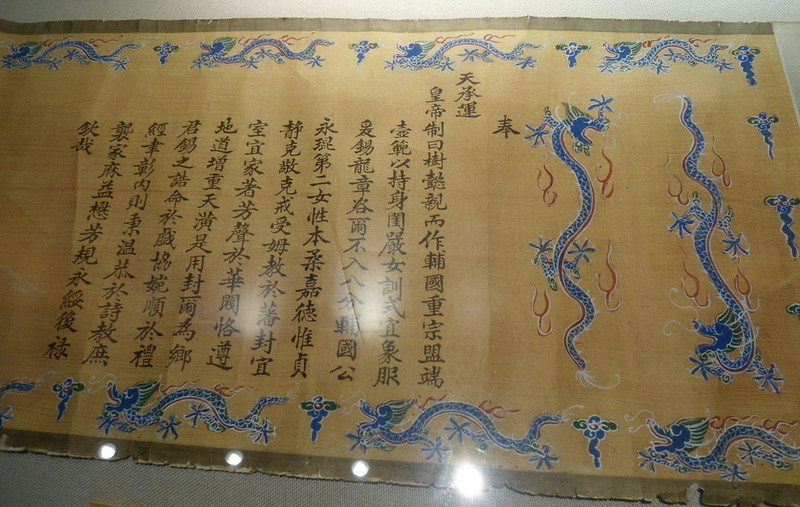 奉
天承運
皇帝制曰樹懿親而作輔國重宗盟端
壼範以持身閨嚴女訓式宜象服
爰錫龍章咨爾不入八分輔國公
永琨第二女性本柔嘉德惟貞
静克敬克戒受姆教於藩封宜
室宜家著芳聲於華閥恪遵
地道增重天潢是用封爾為鄉
君錫之誥命於戲協婉順於禮
經聿彰内則秉温恭於詩教庶
襲家庥益懋芳規永綏後祿
欽哉